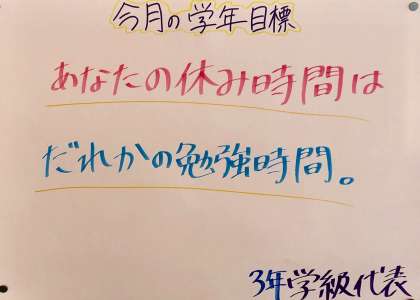 今月の学年目標
あなたの休み時間は
だれかの勉強時間。
3年学級代表